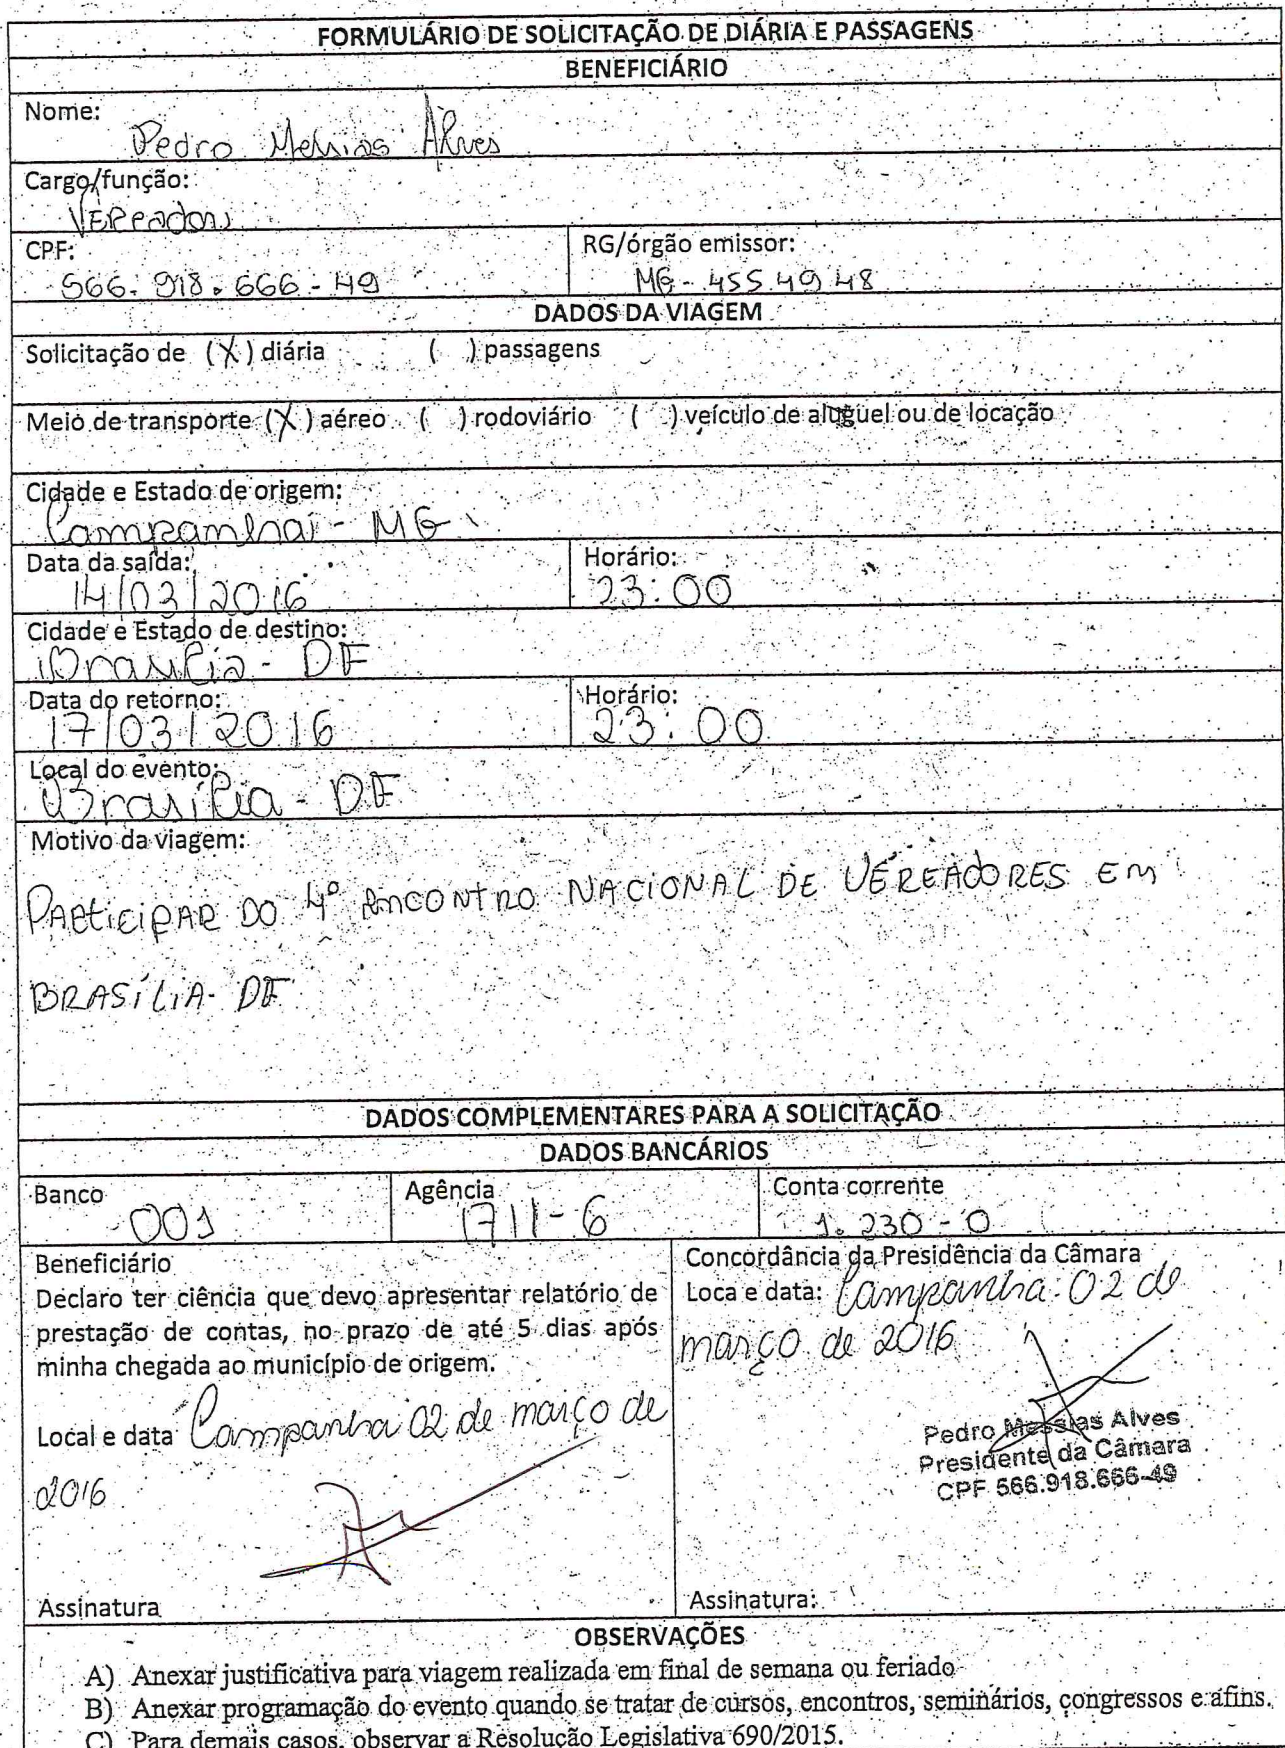 FORMULÁRIO DE SOLICITAÇÃO DE DIÁRIA E PASSAGENS
BENEFICIÁRIO
Nome:
Pedro Messias Alves
Cargo/função:
VEReador
CPF:
566.918.666-49
RG/órgão emissor:
MG-455.49 48
DADOS DA VIAGEM
Solicitação de (X) diária ( ) passagens
Meio de transporte (X) aéreo ( ) rodoviário ( ) veículo de aluguel ou de locação
Cidade e Estado de origem:
Campanha - MG
Data da saída:
14/03/2016
Horário:
23:00
Cidade e Estado de destino:
Brasília - DF
Data do retorno:
17/03/2016
Horário:
23:00
Local do evento:
Brasília - DF
Motivo da viagem:
PARticiPAR DO 4º EnCONTRO NACIONAL DE VEREADORES Em
BRASÍLIA- DF
DADOS COMPLEMENTARES PARA A SOLICITAÇÃO
DADOS BANCÁRIOS
Banco
001
Agência
1711-6
Conta corrente
1.230-0
Beneficiário
Declaro ter ciência que devo apresentar relatório de
prestação de contas, no prazo de até 5 dias após
minha chegada ao município de origem.
Local e data Campanha 02 de março de
2016
Assinatura
Concordância da Presidência da Câmara
Loca e data: Campanha 02 de
março de 2016
Pedro Messias Alves
Presidente da Câmara
CPF 566.918.666-49
Assinatura:
OBSERVAÇÕES
A) Anexar justificativa para viagem realizada em final de semana ou feriado
B) Anexar programação do evento quando se tratar de cursos, encontros, seminários, congressos e afins.
C) Para demais casos, observar a Resolução Legislativa 690/2015.